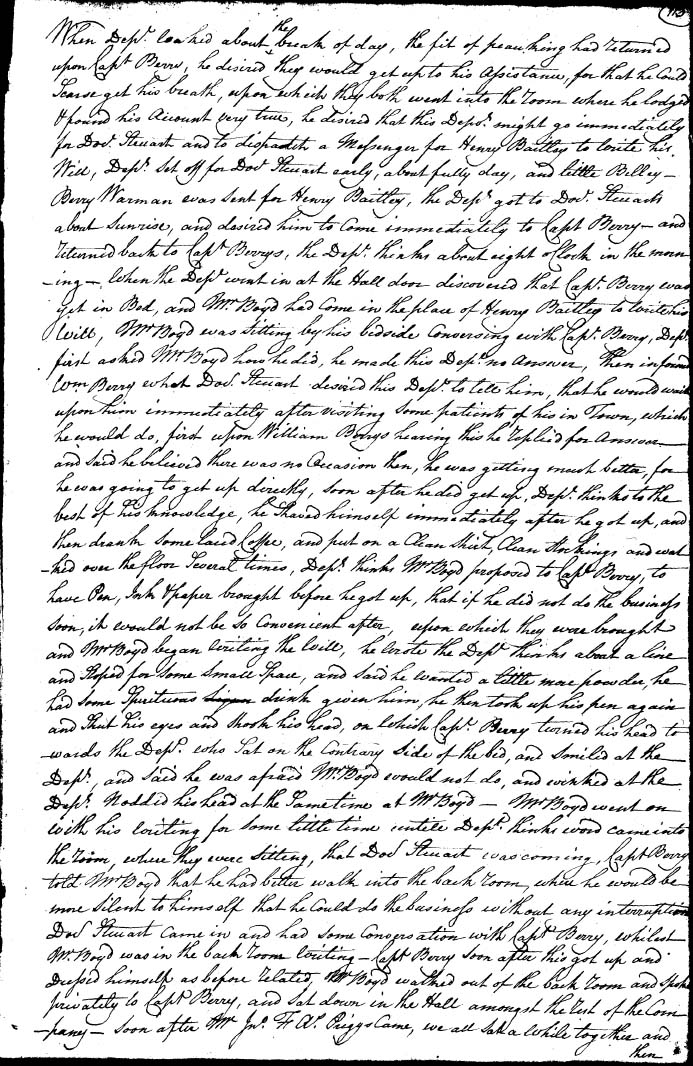 113
When Dept. looked about the break of day, the fit of peaukking had returned
upon Capt. Berry, he desired they would get up to his Assistance, for that he Could
Scarse get his breath, upon which they both went into the room where he lodged
& found his Account very true, he desired that this Depot. might go immediately
for Doct. Steuart and to dispatch a Messenger for Henry Baitley to write his
Will, Depot. Set off for Doct Steuart early, about fully day, and little Billey-
Berry Warman was sent for Henry Baitley, the Depot. got to Doct. Steuarts
about Sunrise, and desired him to Come immediately to Capt Berry – and
returned back to Capt. Berrys, the Depot. thinks about eight oClock in the morn
-ing – When the Depot. went in at the Hall door discovered that Capt. Berry was
yet in Bed, and Mr. Boyd had Come in the place of Henry Baitley to write his
Will, Mr Boyd was Sitting by his bedside Conversing with Capt. Berry, Depot.
first asked Mr Boyd how he did, he made this Depot. no Answer, then informed
Wm Berry what Doct. Steuart desired this Depot. to tell him, that he would wait
upon him immediately after visiting Some patients of his in Town, which
he would do, first upon William Berrys hearing this he replied for Answer
and Said he believed there was no Occasion then, he was getting much better, for
he was going to get up directly, soon after he did get up, Depot. thinks to the
best of his knowledge, he Shaved himself immediately after he got up, and
then drank Some laced Coffe, and put on a Clean Shirt, Clean Stockings and wal
-ked over the floor Several times, Depot. thinks Mr Boyd proposed to Capt Berry, to
have Pen, Ink & paper brought before he got up, that if he did not do the business
soon, it would not be so Convenient after upon which they were brought
and Mr Boyd began writing the Will, he wrote the Depot thinks about a line
and Stoped for some Small Space, and said he wanted a little more powder, he
had some Spurituous drink given him, he then took up his pen again
and Shut his eyes and shook his head, on which Capt. Berry turned his head to
-wards the Depot. who Sat on the Contrary Side of the bed, and Smiled at the
Depot. and said he was afraid Mr. Boyd would not do, and winked at the
Depot. Nodded his head at the Same time at Mr Boyd – Mr Boyd went on
with his writing for some little time untill Depot. thinks word came into
the Room, where they were Sitting, that Doct Steuart was coming, Capt Berry
told Mr Boyd that he had better walk into the back room, where he would be
more Silent to himself that he Could do the business without any interruption
Doct Steuart Came in and had some Conversation with Capt Berry, whilest
Mr. Boyd was in the back Room writing – Capt Berry Soon after this got up and
Dressed himself as before related Mr Boyd walked out of the back Room and spoke
privately to Capt Berry, and sat down in the Hall amongst the rest of the Com
-pany – Soon after Mr Jno. F. As. Priggs Came, we all Sat a while together and
then